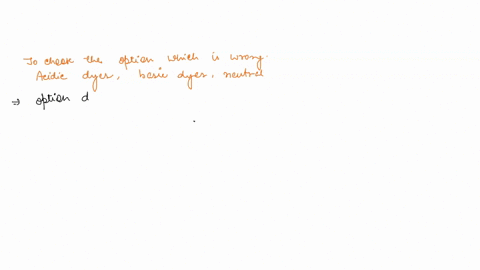 To check the option which is wrong.
Acidic dyes, basic dyes, neutral
⇒ option d